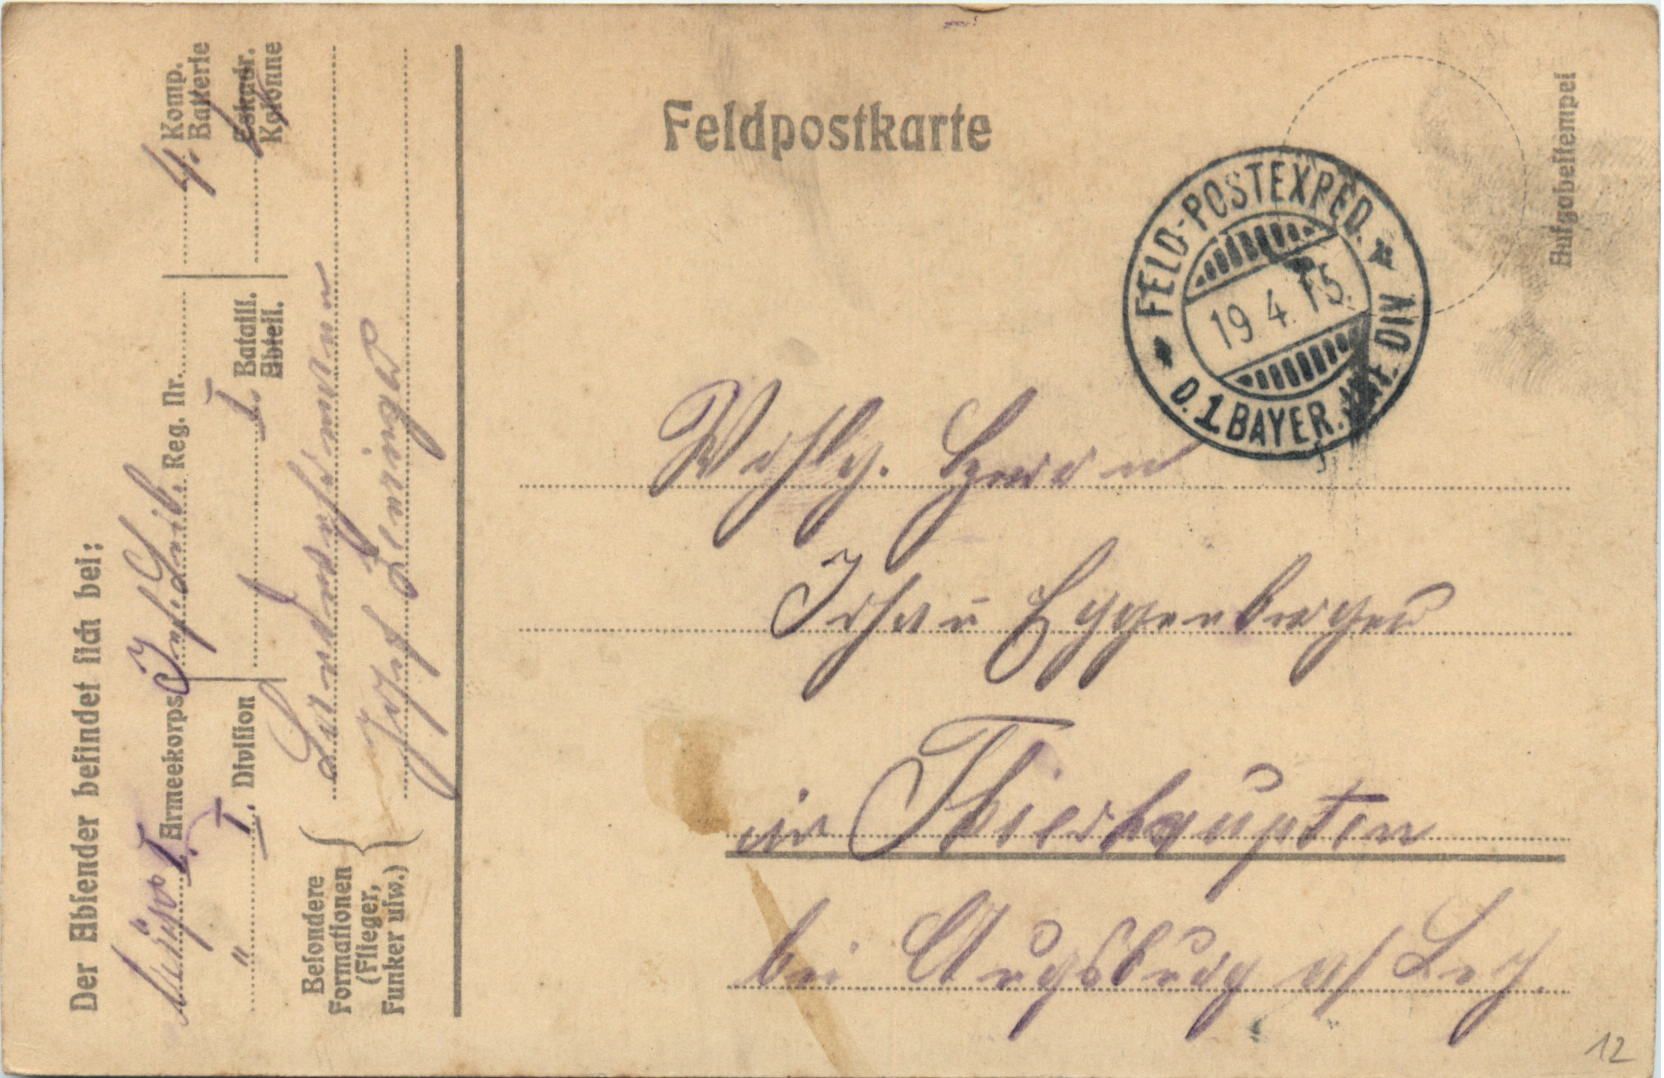 Feldpostkarte
Aufgabestempel
FELD-POSTEXPED.
19.4.15.
D. 1. BAYER. INF. DIV.
Wohlg. Herrn
Johann Eggenberger
in Thierhaupten
bei Augsburg a/Lech.
Der Absender befindet sich bei:
Bayr. I. Armeekorps Inf. Leib. Reg. Nr. 4. Komp. Batterie
" I. Division I. Bataill. Abteil. Eskadr. Kolonne
Besondere Formationen (Flieger, Funker usw.)
Landwehrmann
Josef
12